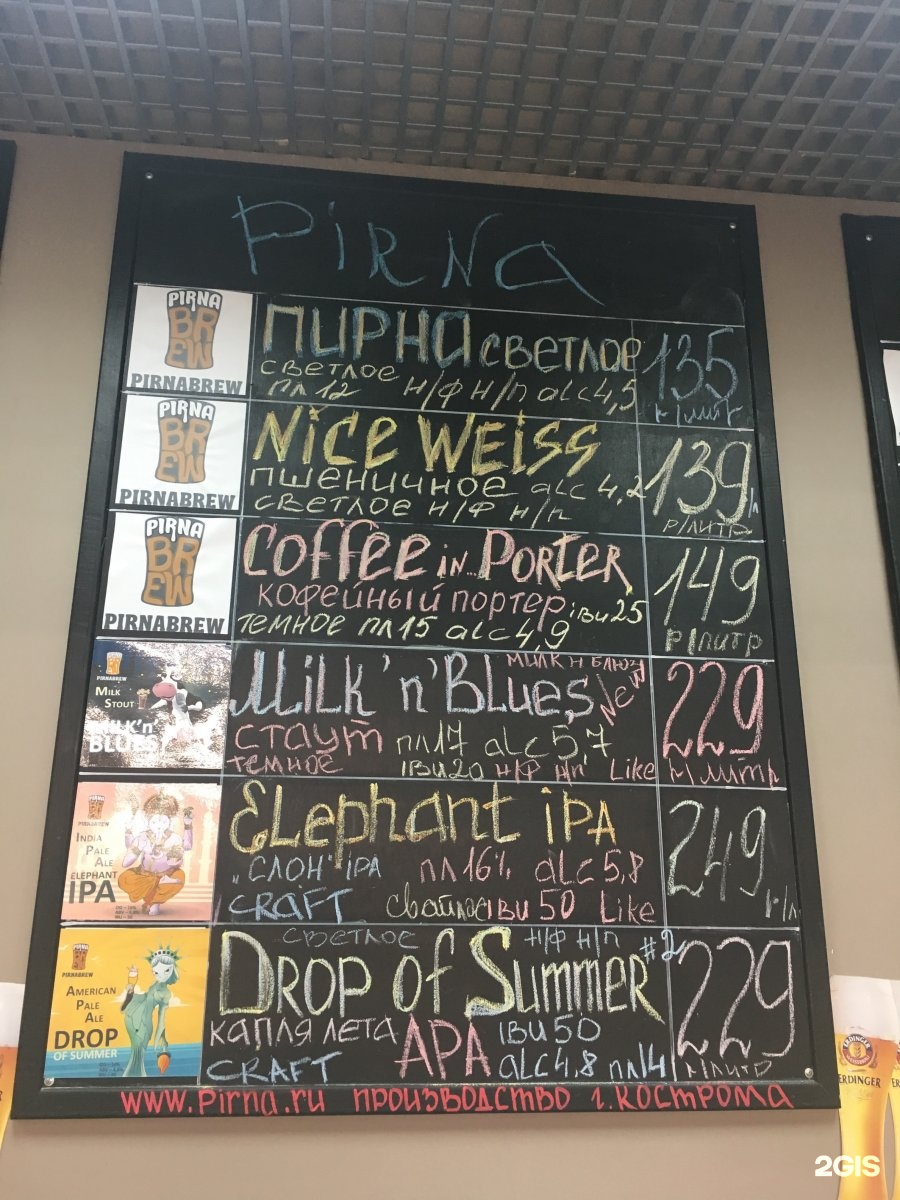 PIRNA
PIRNA
BREW
PIRNABREW
ПИРНА светлое
135
светлое
пл 12 н/ф н/п alc 4,5
р/литр
PIRNA
BREW
PIRNABREW
Nice Weiss
139
пшеничное alc 4,2
светлое н/ф н/п
р/литр
PIRNA
BREW
PIRNABREW
Coffee in Porter
149
кофейный портер iBu 25
темное пл 15 alc 4,9
р/литр
PIRNABREW
MILK
STOUT
MILK'n'
BLUES
милк н блюз
Milk 'n' Blues
New
229
стаут пл 17 alc 5,7
темное iBu 20 н/ф нп Like
р литр
PIRNABREW
INDIA
PALE
ALE
ELEPHANT
IPA
Elephant iPA
249
"СЛОН" iPA пл 16% alc 5,8
CRAFT iBu 50 Like
р/л
PIRNABREW
AMERICAN
PALE
ALE
DROP
OF SUMMER
светлое н/ф н/п
Drop of Summer #2
229
капля лета APA iBu 50
CRAFT alc 4,8 пл 14
р/литр
www.Pirna.ru производство г.Кострома
ERDINGER
2GIS